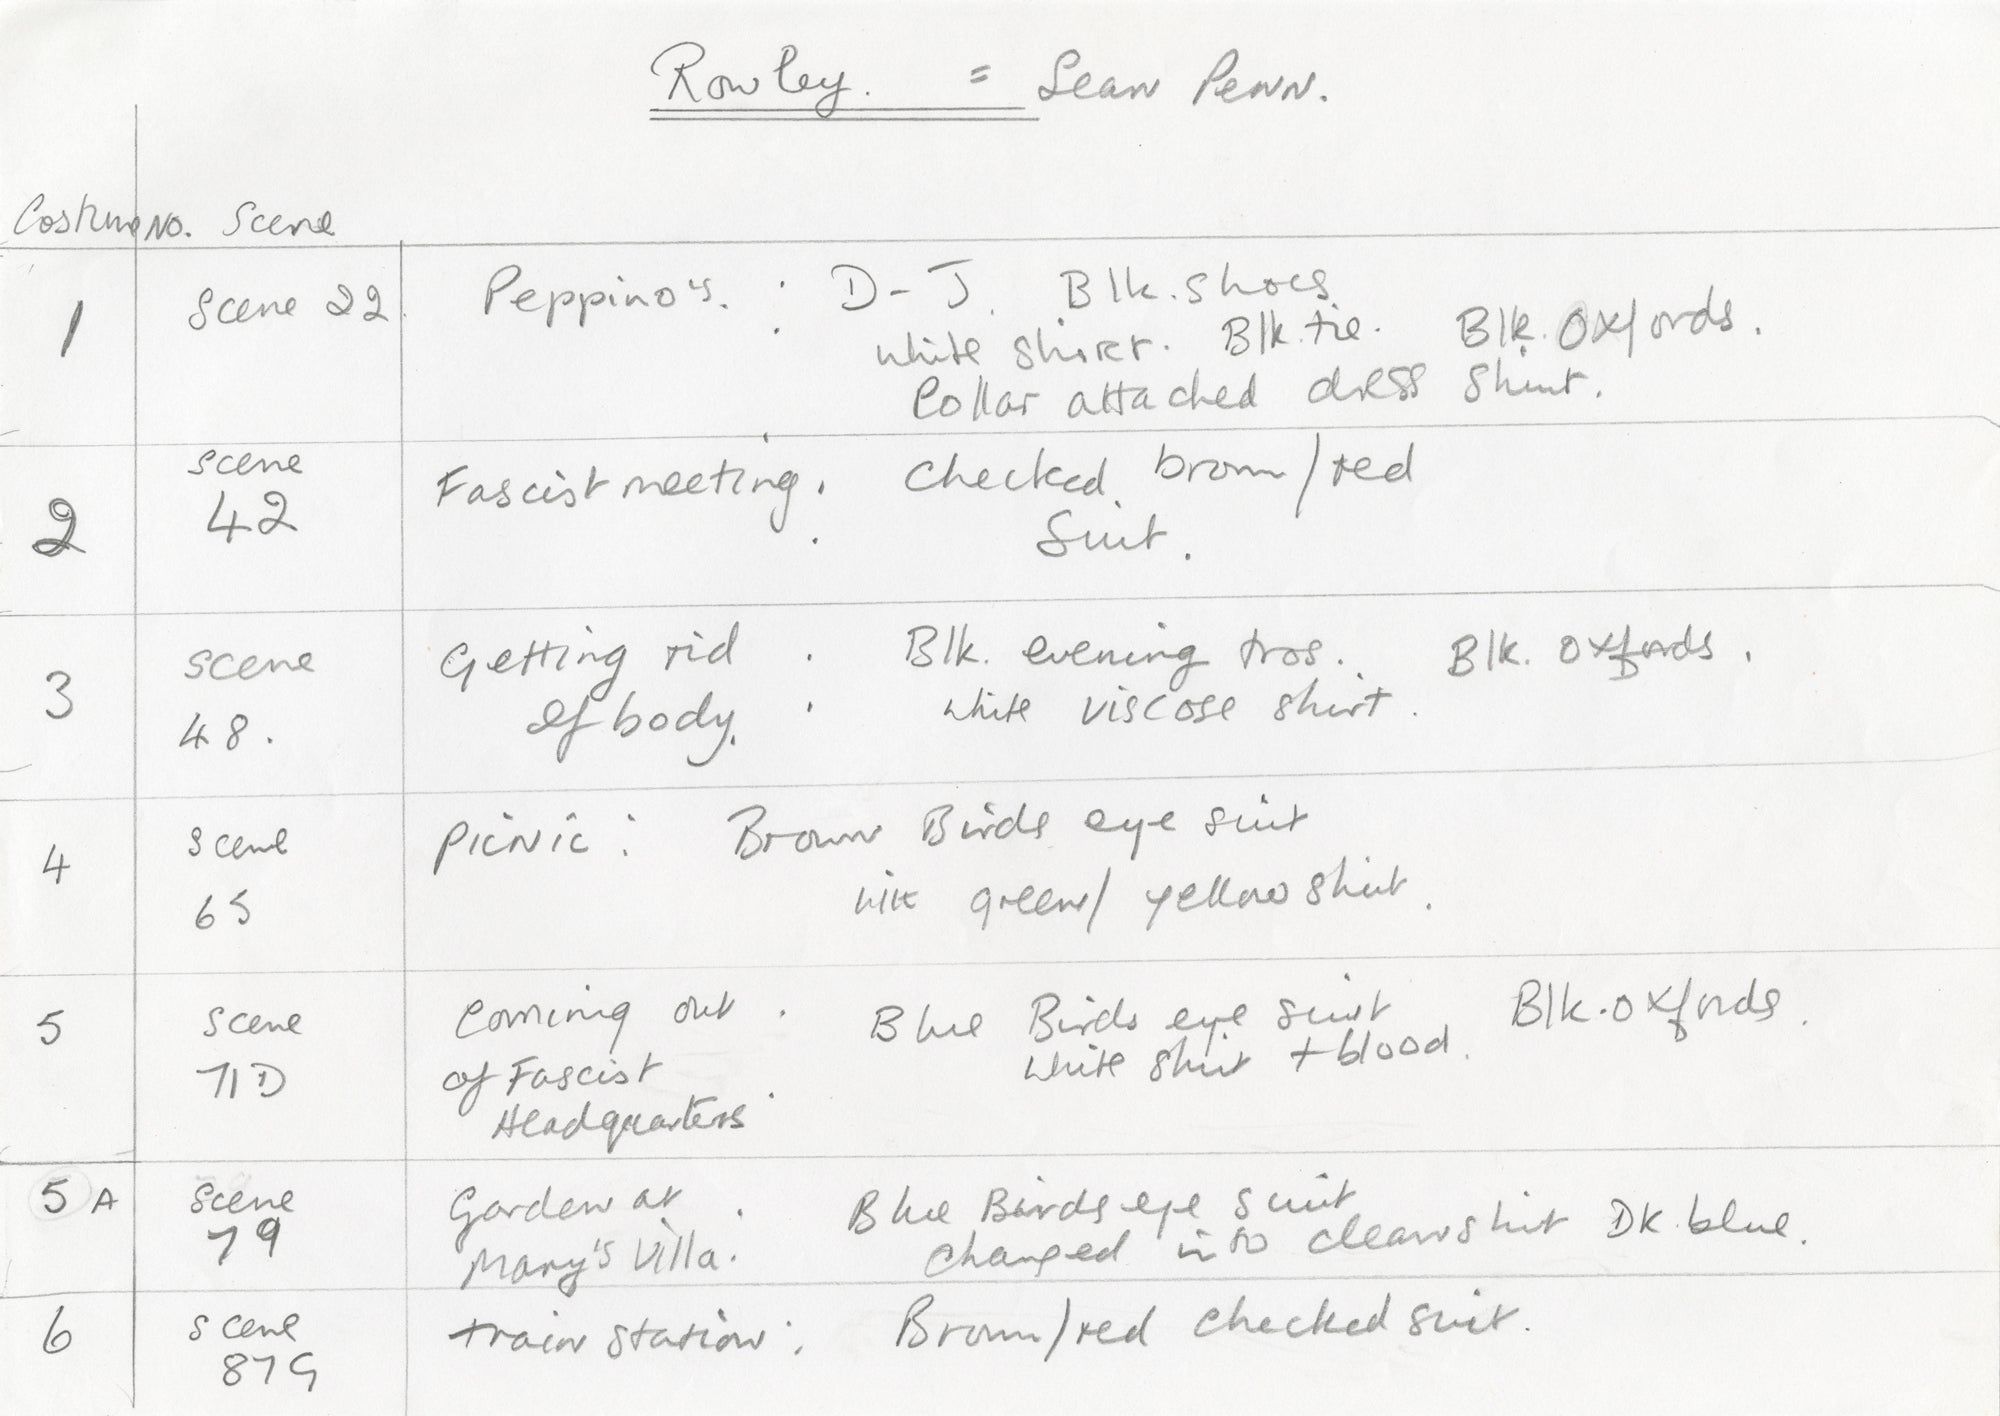 Rowley. = Sean Penn.
Costume No. Scene
1 Scene 22 Peppino's. : D-J Blk. shoes
white shirt. Blk. tie. Blk. Oxfords.
Collar attached dress shirt.
2 Scene 42 Fascist meeting. Checked brown/red
Suit.
3 Scene 48. Getting rid : Blk. evening tros. Blk. Oxfords.
of body. white viscose shirt.
4 Scene 65 Picnic : Brown Birds eye suit
with green/yellow shirt.
5 Scene 71D Coming out . Blue Birds eye suit Blk. oxfords.
of Fascist white shirt + blood.
Headquarters
5A Scene 79 Garden at Blue Birds eye suit
Mary's Villa. changed into clean shirt DK. blue.
6 Scene 87G train station : Brown/red checked suit.